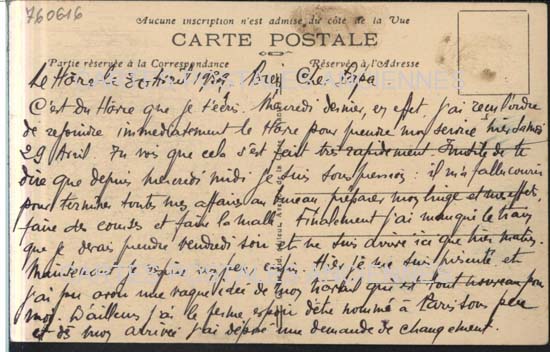 760616
Aucune inscription n'est admise du côté de la Vue
CARTE POSTALE
Partie réservée à la Correspondance
Réservée à l'Adresse
Le Hâvre le 30 Avril 1909 Cher Papa
C'est du Hâvre que je t'écris. Mercredi dernier, en effet, j'ai reçu l'ordre
de rejoindre immédiatement le Hâvre pour prendre mon service
29 Avril. Tu vois que cela s'est fait très rapidement. Inutile de te
dire que depuis mercredi midi je suis sous pression: il m'a fallu courir
pour terminer toutes mes affaires au bureau préparer mon linge et mes effets,
faire des courses et faire la malle. Finalement j'ai manqué le train
que je devais prendre vendredi soir et ne suis arrivé ici que hier matin.
Maintenant je respire un peu enfin. Hier je me suis présenté et
j'ai pu avoir une vague idée de mon travail qui est tout nouveau pour
moi. D'ailleurs j'ai le ferme espoir d'être nommé à Paris sous peu
et dès mon arrivée j'ai déposé une demande de changement.